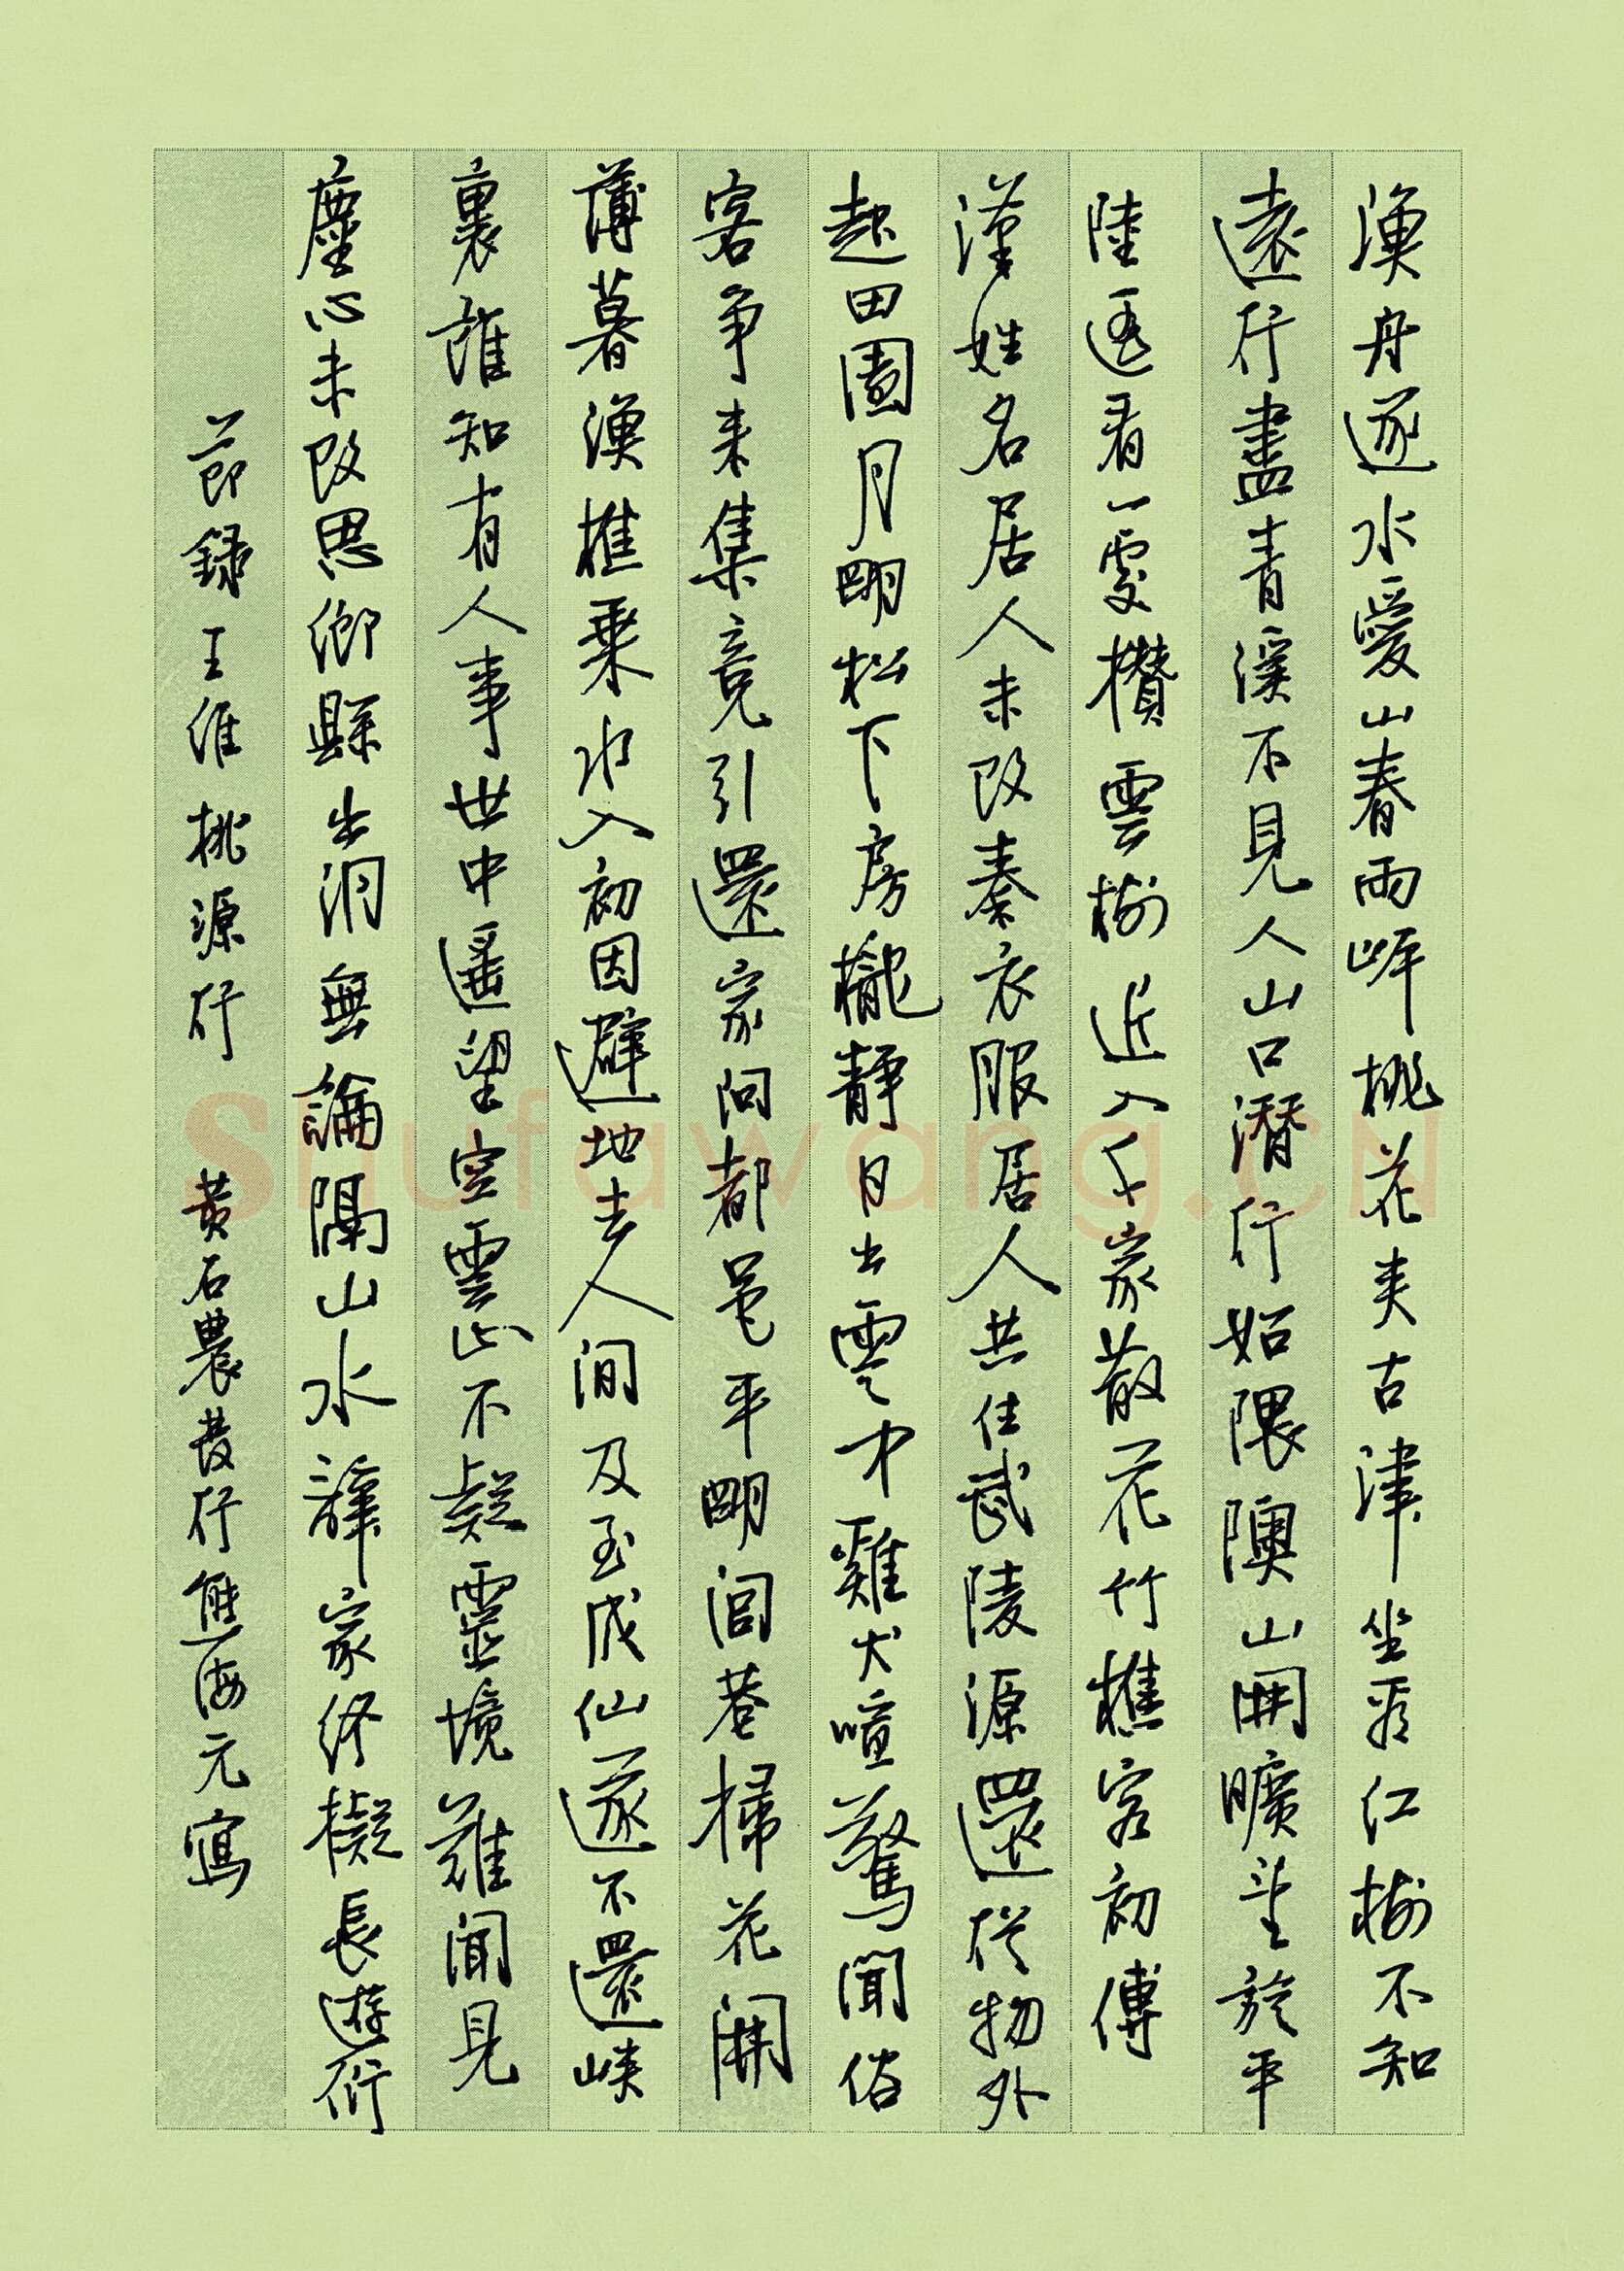 漁舟逐水愛山春兩岸桃花夾古津坐看紅樹不知
遠行盡青溪不見人山口潛行始隈隩山開曠望旋平
陸遥看一處攢雲樹近入千家散花竹樵客初傳
漢姓名居人未改秦衣服居人共住武陵源還從物外
起田園月明松下房櫳靜日出雲中雞犬喧驚聞俗
客争来集竞引還家问都邑平明閭巷掃花開
薄暮漁樵乘水入初因避地去人间及至成仙遂不還峡
裏誰知有人事世中遥望空雲山不疑靈境難聞見
塵心未改思鄉縣出洞無論隔山水辭家終擬長遊衍
節録王維桃源行 黄石農書行 海元寫
shufawang.cn